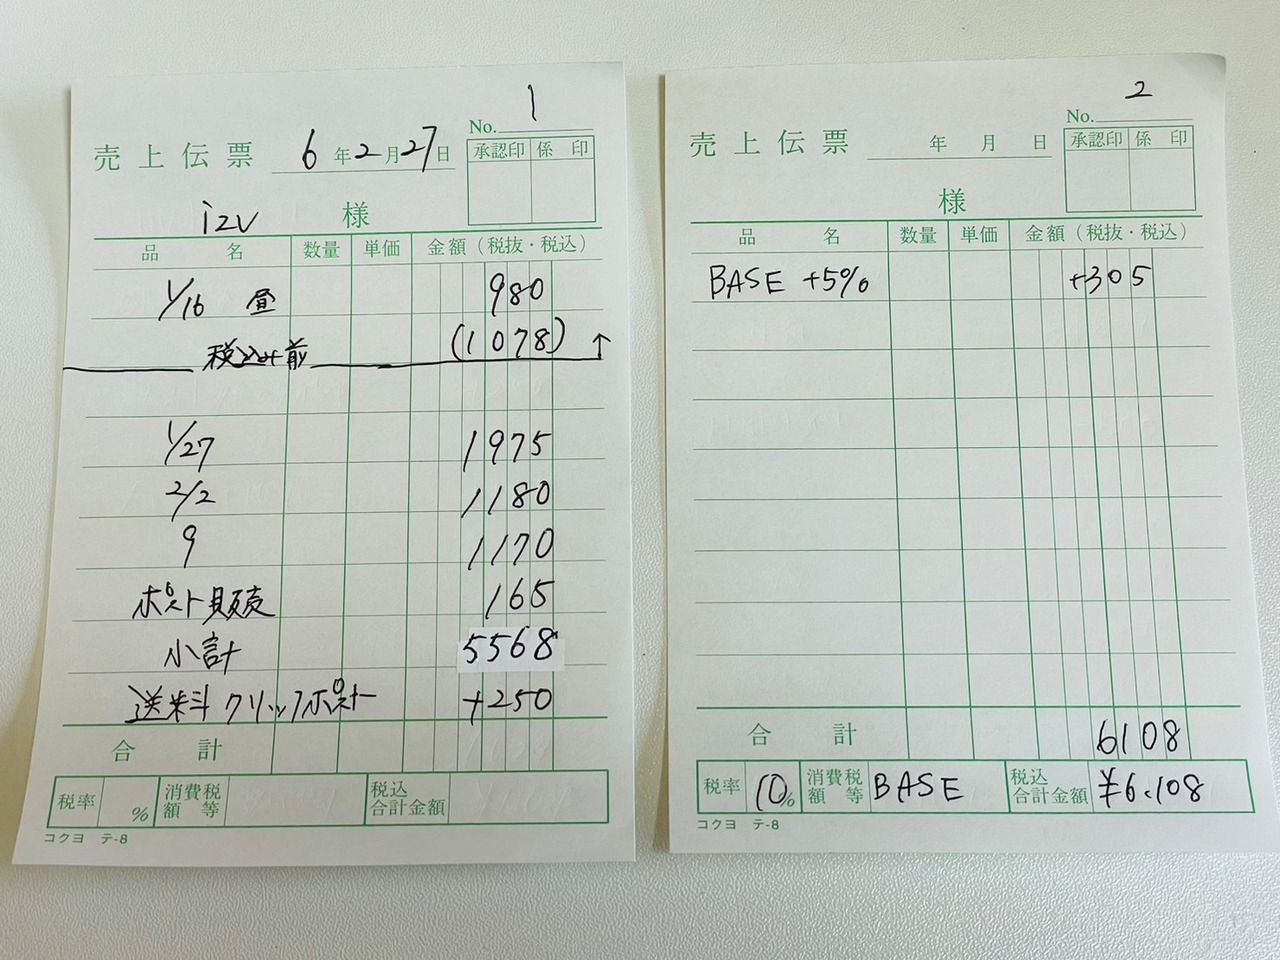 1
No.
売上伝票 6年2月27日
承認印 係印
izu 様
品名 数量 単価 金額（税抜・税込）
1/16 昼 980
税込み前 (1078) ↑
1/27 1975
2/2 1180
9 1170
ポスト販売 165
小計 5568
送料 クリックポスト +250
合計
税率 % 消費税額等 税込合計金額
コクヨ テ-8
2
No.
売上伝票 年月日
承認印 係印
様
品名 数量 単価 金額（税抜・税込）
BASE +5% +305
合計 6108
税率 10% 消費税額等 BASE 税込合計金額 ¥6.108
コクヨ テ-8